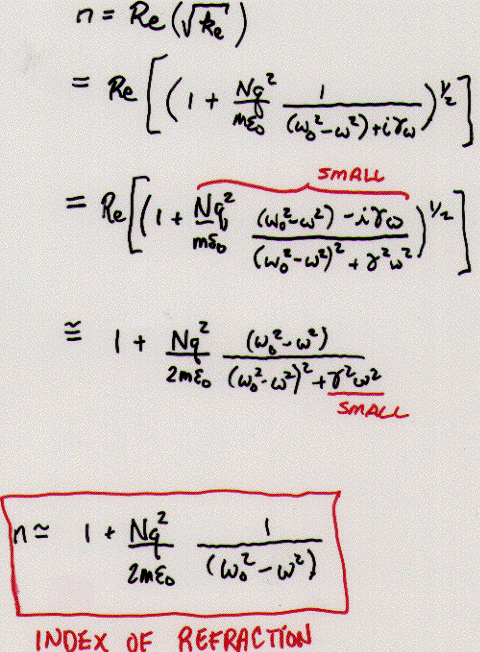 n = Re(√ke)
= Re[(1 + Nq²/mε₀ 1/((ω₀²-ω²)+iγω))^1/2]
SMALL
= Re[(1 + Nq²/mε₀ ((ω₀²-ω²)-iγω)/((ω₀²-ω²)²+γ²ω²))^1/2]
≅ 1 + Nq²/2mε₀ (ω₀²-ω²)/((ω₀²-ω²)²+γ²ω²)
SMALL
n ≃ 1 + Nq²/2mε₀ 1/(ω₀²-ω²)
INDEX OF REFRACTION